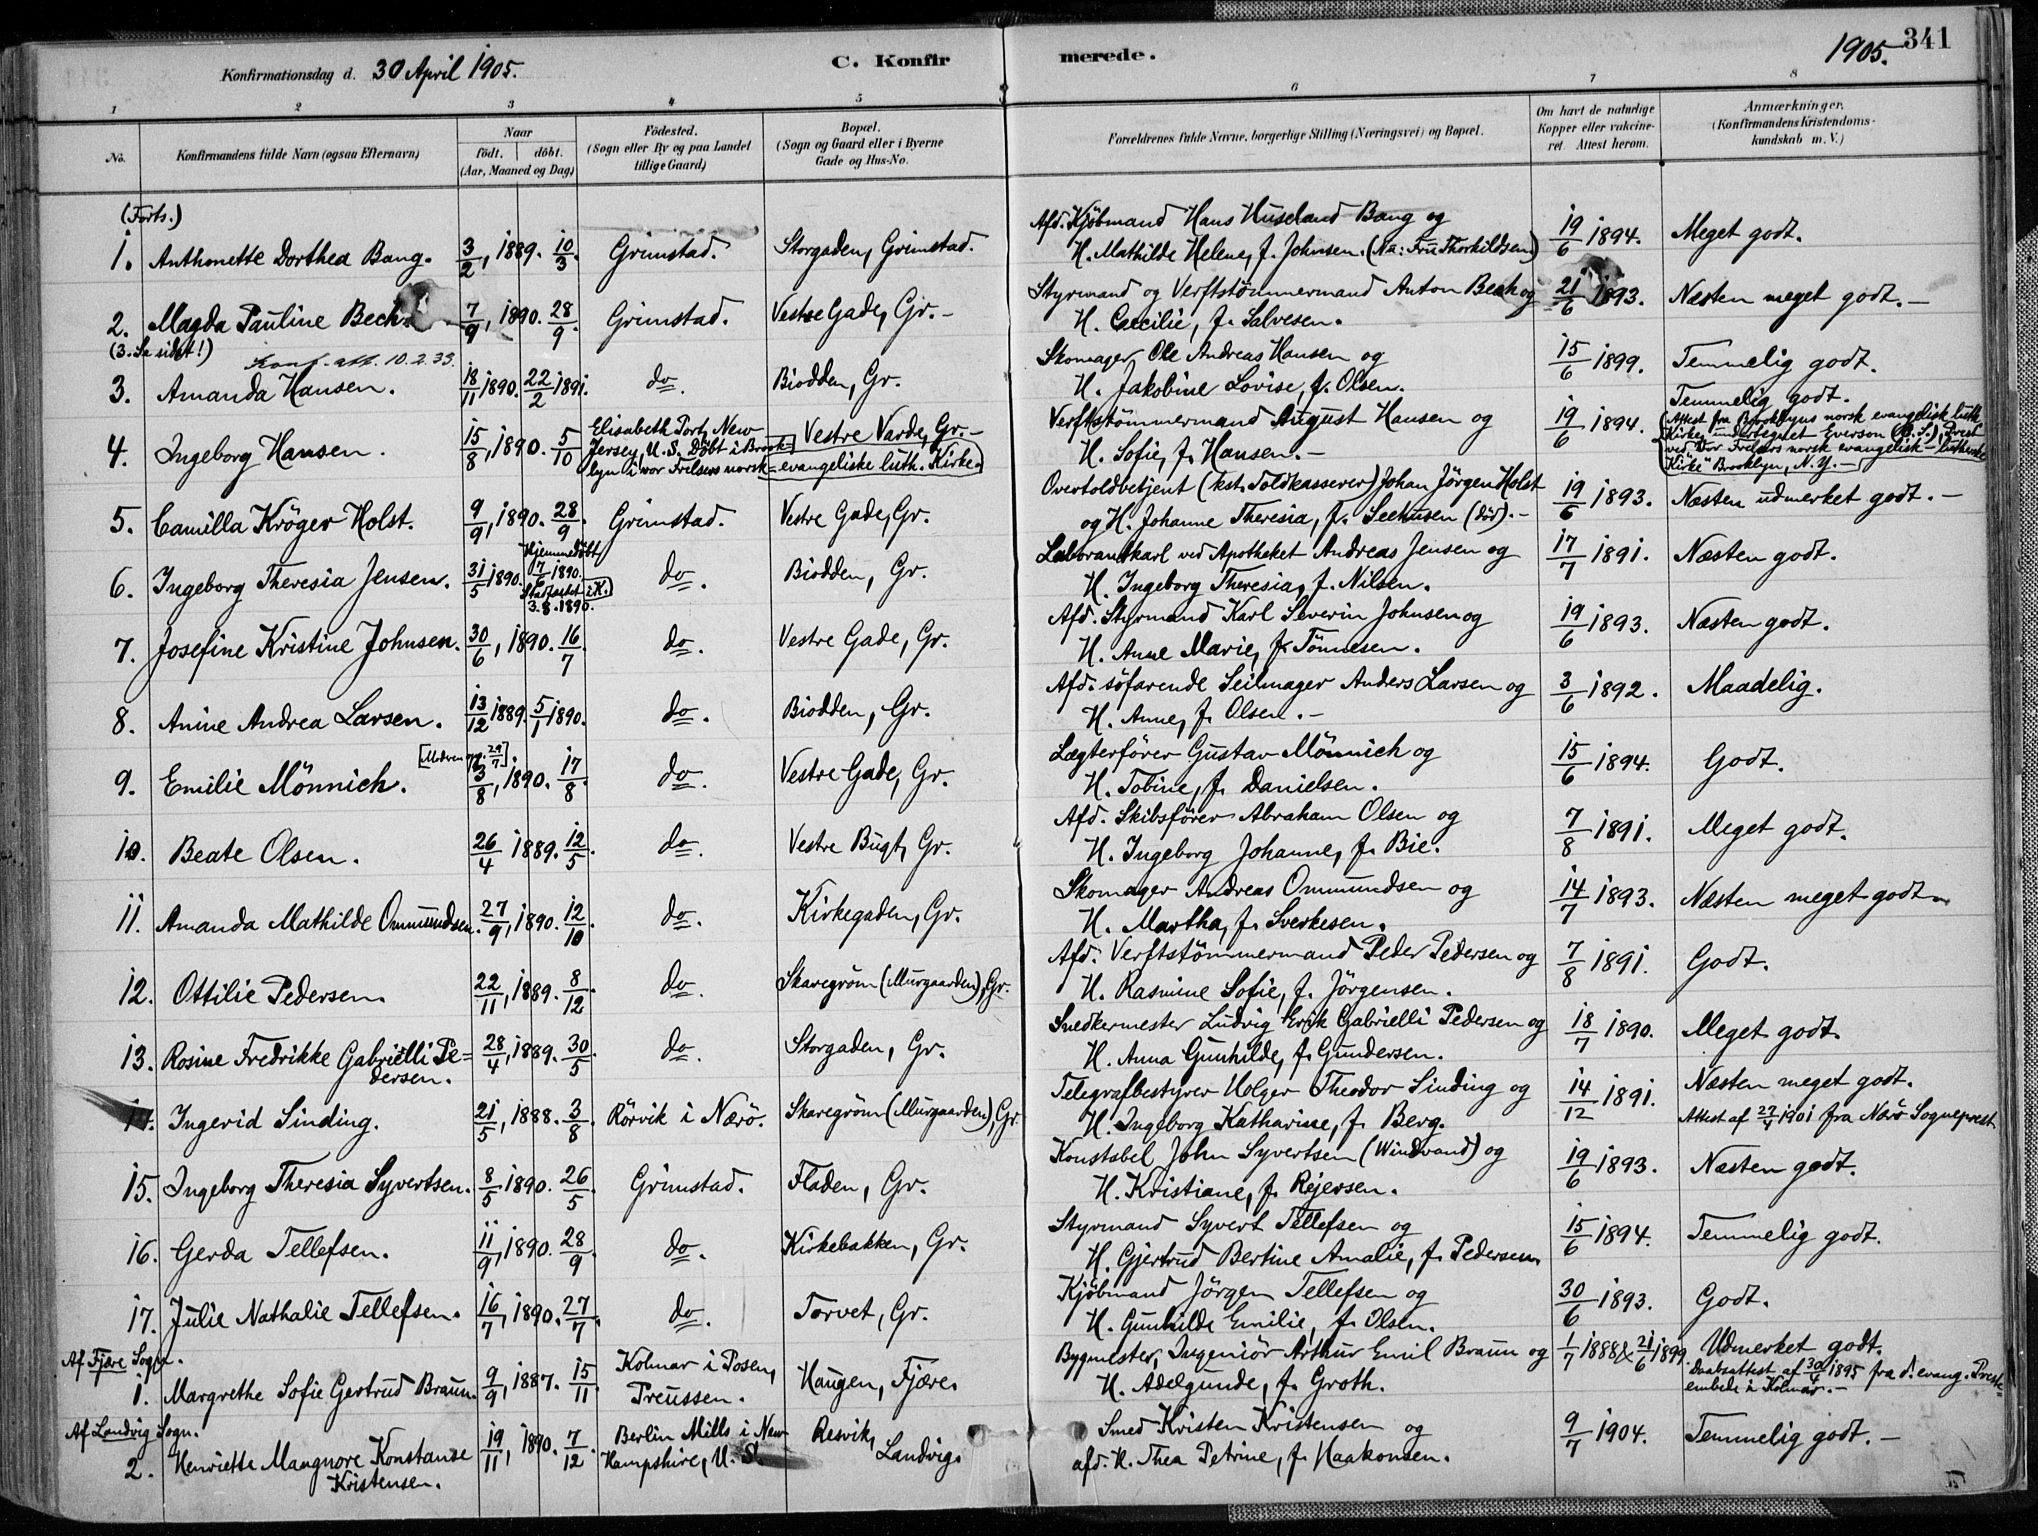 341
1905.
Konfirmationsdag d. 30 April 1905.
C. Konfirmerede.
1 2 3 4 5 6 7 8
No.
Konfirmandens fulde Navn (ogsaa Efternavn)
Naar
født. døbt.
(Aar, Maaned og Dag)
Fødested.
(Sogn eller By og paa Landet
tillige Gaard)
Bopæl.
(Sogn og Gaard eller i Byerne
Gade og Hus-No.
Forældrenes fulde Navne, borgerlige Stilling (Næringsvei) og Bopæl.
Om havt de naturlige
Kopper eller vakcine-
ret. Attest herom.
Anmærkninger.
(Konfirmandens Kristendoms-
kundskab m. V.)
(Forts.)
1. Anthonette Dorthea Bang. 3/2, 1889. 10/3. Grimstad. Storgaden, Grimstad.
Afd. Kjöbmand Hans Huseland Bang og
H. Mathilde Helene, f. Johnsen. (Nu: Fru Thorkildsen) 19/6 1894. Meget godt.
2. Magda Pauline Bech. 7/9, 1890. 28/9. Grimstad. Vestre Gade, Gr.-
Styrmand og Verftstömmermand Anton Bech og
H. Cæcilie, f. Salvesen. 21/6 1893. Næsten meget godt.-
(3. Se sidst!) Konf. att. 10.2.39.
3. Amanda Hansen. 18/11 1890. 22/2 1891. do. Biodden, Gr.
Skomager Ole Andreas Hansen og
H. Jakobine Lovise, f. Olsen. 15/6 1899. Temmelig godt.
4. Ingeborg Hansen. 15/8, 1890. 5/10 Elisabeth Port, New
Jersey, U. S. Döbt i Brook-
lyn i vor Frelsers norsk=evangeliske luth. Kirke. Vestre Varde, Gr.-
Verftstömmermand August Hansen og
H. Sofie, f. Hansen.- 19/6 1894. Temmelig godt.
(Attest fra Brooklyns norsk evangelisk luth.
Kirke, undertegnet Everson (B. S.), Prest
ved "Vor Frelsers norsk evangelisk-lutherske
Kirke" Brooklyn, N. Y.-
5. Camilla Kröger Holst. 9/9, 1890. 28/9. Grimstad. Vestre Gade, Gr.
Overtoldbetjent (kst. Toldkasserer) Johan Jörgen Holst
og H. Johanne Theresia, f. Seehusen (död).- 19/6 1893. Næsten udmerket godt.-
6. Ingeborg Theresia Jensen. 31/5 1890. Hjemmedöbt
17/6 1890.
Stadfæstet i K.
3.8.1890. do. Biodden, Gr.
Laborantkarl ved Apotheket Andreas Jensen og
H. Ingeborg Theresia, f. Nilsen. 17/7 1891. Næsten godt.
7. Josefine Kristine Johnsen. 30/6, 1890. 16/7 do. Vestre Gade, Gr.
Afd. Styrmand Karl Severin Johnsen og
H. Anne Marie, f. Tönnesen. 19/6 1893. Næsten godt.
8. Anine Andrea Larsen. 13/12 1889. 5/1 1890. do. Biodden, Gr.
Afd. söfarende Seilmager Anders Larsen og
H. Anne, f. Olsen.- 3/6 1892. Maadelig.
9. Emilie Mönnich. 3/8, 1890. 17/8 do. Vestre Gade, Gr.
Lægterförer Gustav Mönnich og
H. Tobine, f. Danielsen. 15/6 1894. Godt.
10. Beate Olsen. 26/4 1889. 12/5. do. Vestre Bugt, Gr.
Afd. Skibsförer Abraham Olsen og
H. Ingeborg Johanne, f. Bie. 7/8 1891. Meget godt.
11. Amanda Mathilde Ommundsen. 27/9, 1890. 12/10. do. Kirkegaden, Gr.
Skomager Andreas Ommundsen og
H. Martha, f. Sverkesen. 14/7 1893. Næsten meget godt.
12. Ottilie Pedersen. 22/11, 1889. 8/12. do. Skaregröm (Murgaarden), Gr.
Afd. Verftstömmermand Peder Pedersen og
H. Rasmine Sofie, f. Jörgensen. 7/8 1891. Godt.
13. Rosine Fredrikke Gabrielli Pe=
dersen. 28/4, 1889. 30/5. do. Storgaden, Gr.
Snedkermester Ludvig Erik Gabrielli Pedersen og
H. Anna Gunhilde, f. Gundersen. 18/7 1890. Meget godt.
14. Ingerid Sinding. 21/5, 1888. 3/8 Rörvik i Nærö. Skaregröm (Murgaarden), Gr.
Telegrafbestyrer Holger Theodor Sinding og
H. Ingeborg Katharine, f. Berg. 14/12 1891. Næsten meget godt.
Attest af 27/4 1901 fra Nærö Sogneprest.
15. Ingeborg Theresia Syvertsen. 8/5 1890. 26/5. Grimstad. Fladen, Gr.
Konstabel John Syvertsen (Windvand) og
H. Kristiane, f. Rejersen. 19/6 1893. Næsten godt.
16. Gerda Tellefsen. 11/9, 1890. 28/9. do. Kirkebakken, Gr.
Styrmand Syvert Tellefsen og
H. Gjertrud Bertine Amalie, f. Pedersen. 15/6 1894. Temmelig godt.
17. Julie Nathalie Tellefsen. 16/7, 1890. 27/7. do. Torvet, Gr.
Kjöbmand Jörgen Tellefsen og
H. Gunhilde Emilie, f. Olsen. 30/6 1893. Godt.
Af Fjære Sogn.
1. Margrethe Sofie Gertrud Braun. 9/9, 1887. 15/11 Kolmar i Posen,
Preussen. Haugen, Fjære.
Bygmester, Ingeniör Arthur Emil Braun og
H. Adelgunde, f. Groth. 1/7 1888 & 21/6 1899. Udmerket godt.
Daabsattest af 30/4 1895 fra d. evang. Preste-
embede i Kolmar.-
Af Landvig Sogn.
2. Henriette Mangnore Konstanse
Kristensen. 19/11, 1890. 7/12. Berlin Mills i New
Hampshire, U. S. Resvik,
Landvig.
Smed Kristen Kristensen og
afd. H. Thea Petrine, f. Haakonsen. 9/7 1904. Temmelig godt.-